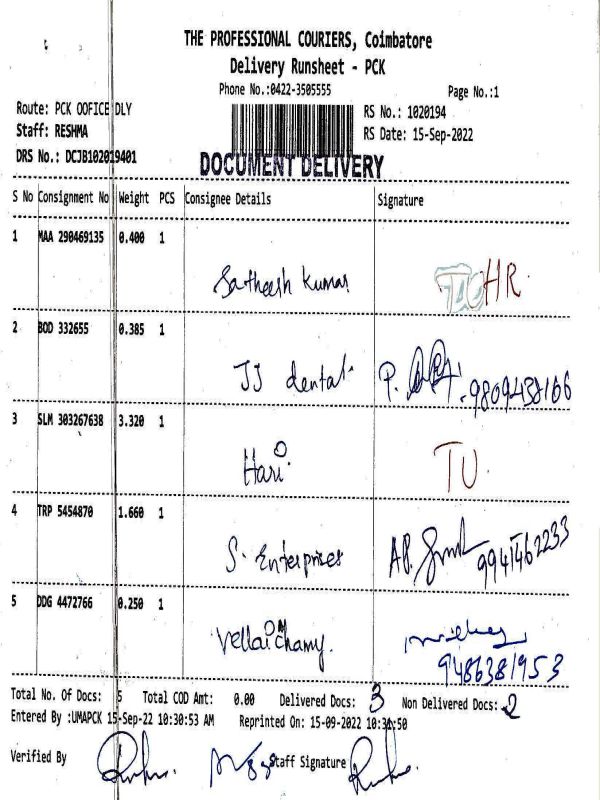 THE PROFESSIONAL COURIERS, Coimbatore
Delivery Runsheet - PCK
Phone No.:0422-3505555 Page No.:1
Route: PCK OOFICE DLY RS No.: 1020194
Staff: RESHMA RS Date: 15-Sep-2022
DRS No.: DCJB102019401 DOCUMENT DELIVERY
S No Consignment No Weight PCS Consignee Details Signature
1 MAA 290469135 0.400 1
Satheesh Kumar HR
2 BOD 332655 0.385 1
JJ dental P. 9809438166
3 SLM 303267638 3.320 1
Hari TU
4 TRP 5454870 1.660 1
S. Enterprises 9941462233
5 DDG 4472766 0.250 1
Vellaichamy 9486381953
Total No. Of Docs: 5 Total COD Amt: 0.00 Delivered Docs: 3 Non Delivered Docs: 2
Entered By :UMAPCK 15-Sep-22 10:30:53 AM Reprinted On: 15-09-2022 10:31:50
Verified By Staff Signature